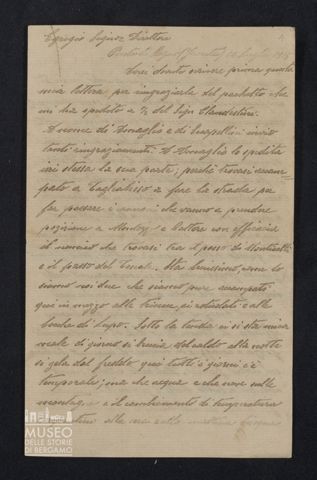 Egregio Signor Direttore
Ponte di Legno
Avrei dovuto scrivere prima questa
mia lettera per ringraziarla del pacchetto che
mi ha spedito a % del Sign Clandestini.
A nome di Donaglio e di Scarpellini invio
tanti ringraziamenti. A Donaglio le spedita
ieri stesso la sua parte; perché trovasi accam-
pato a Cagliabisso a fare la strada per
far passare i che vanno a prendere
posizione a e battere con efficacia
il nemico che trovasi tra il passo di Monticelli
e il passo del Tonale. Sta benissimo, come lo
siamo noi due che siamo pure accampati
qui in mezzo alle trincee, ai reticolati e alle
bocche di lupo. Sotto la tenda ci si sta mica
male di giorno si brucia del caldo alla notte
si gela dal freddo qui tutti i giorni c'è
temporale; ora che acqua e che neve sulle
montagne e il cambiamento di temperatura
alla sera
MUSEO
DELLE STORIE
DI BERGAMO